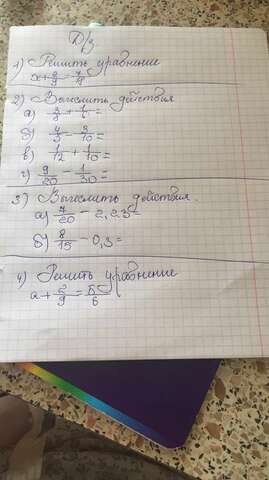 Д/з
1) Решить уравнение
x + 2/9 = 7/9
2) Вычеслить действия
а) 3/8 + 7/6 =
б) 4/5 - 3/10 =
в) 1/12 + 1/10 =
г) 9/20 - 1/30 =
3) Вычеслить действия.
а) 7/20 - 2,23 =
б) 8/15 - 0,3 =
4) Решить уравнение
a + 2/9 = 5/6